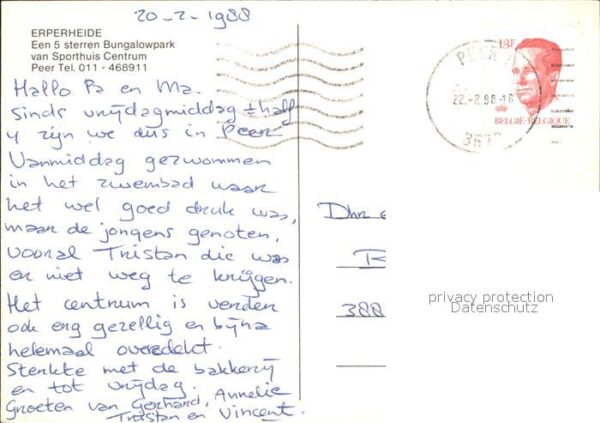 20-2-1988
ERPERHEIDE
Een 5 sterren Bungalowpark
van Sporthuis Centrum
Peer Tel. 011 - 468911
Hallo Pa en Ma.
sinds vrijdagmiddag ± half
4 zijn we dus in Peer
Vanmiddag gezwommen
in het zwembad waar
het wel goed druk was,
maar de jongens genoten,
vooral Tristan die was
er niet weg te krijgen.
Het centrum is verder
ook erg gezellig en bijna
helemaal overdekt.
Sterkte met de bakkerij
en tot vrijdag.
Groeten van Gerhard, Annelie
Tristan en Vincent.
13F
BELGIË-BELGIQUE
PEER
22.-2.98-18
Dhr
388
privacy protection
Datenschutz